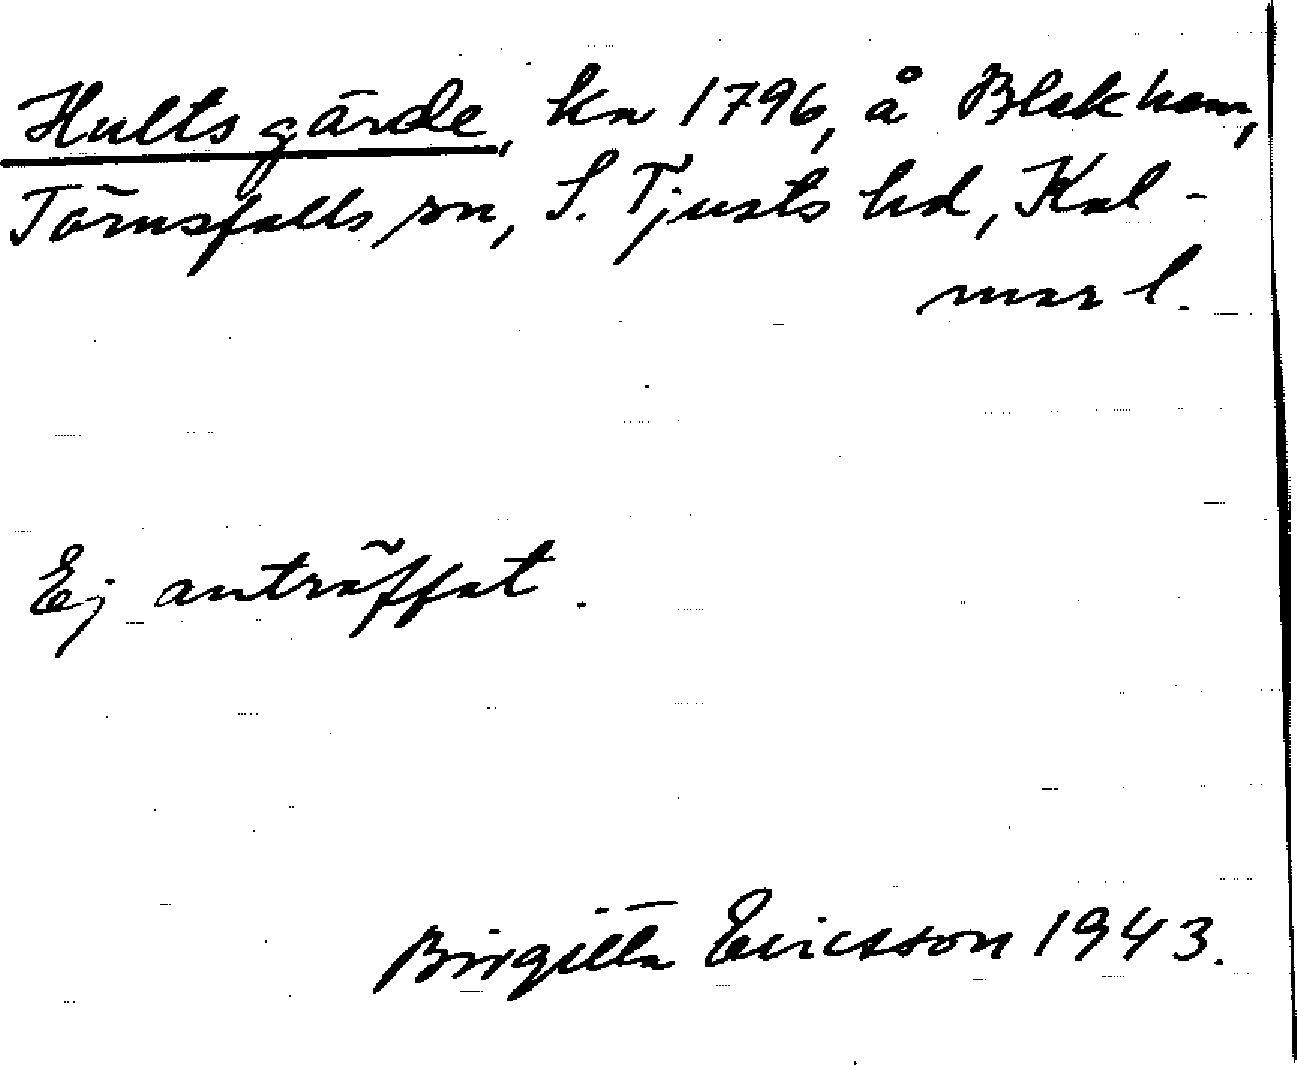 Hultsgärde, kn 1796, å Blekhem,
Törnsfalls sn, S. Tjusts hd, Kal-
mar l.
Ej anträffat.
Birgitta Ericsson 1943.